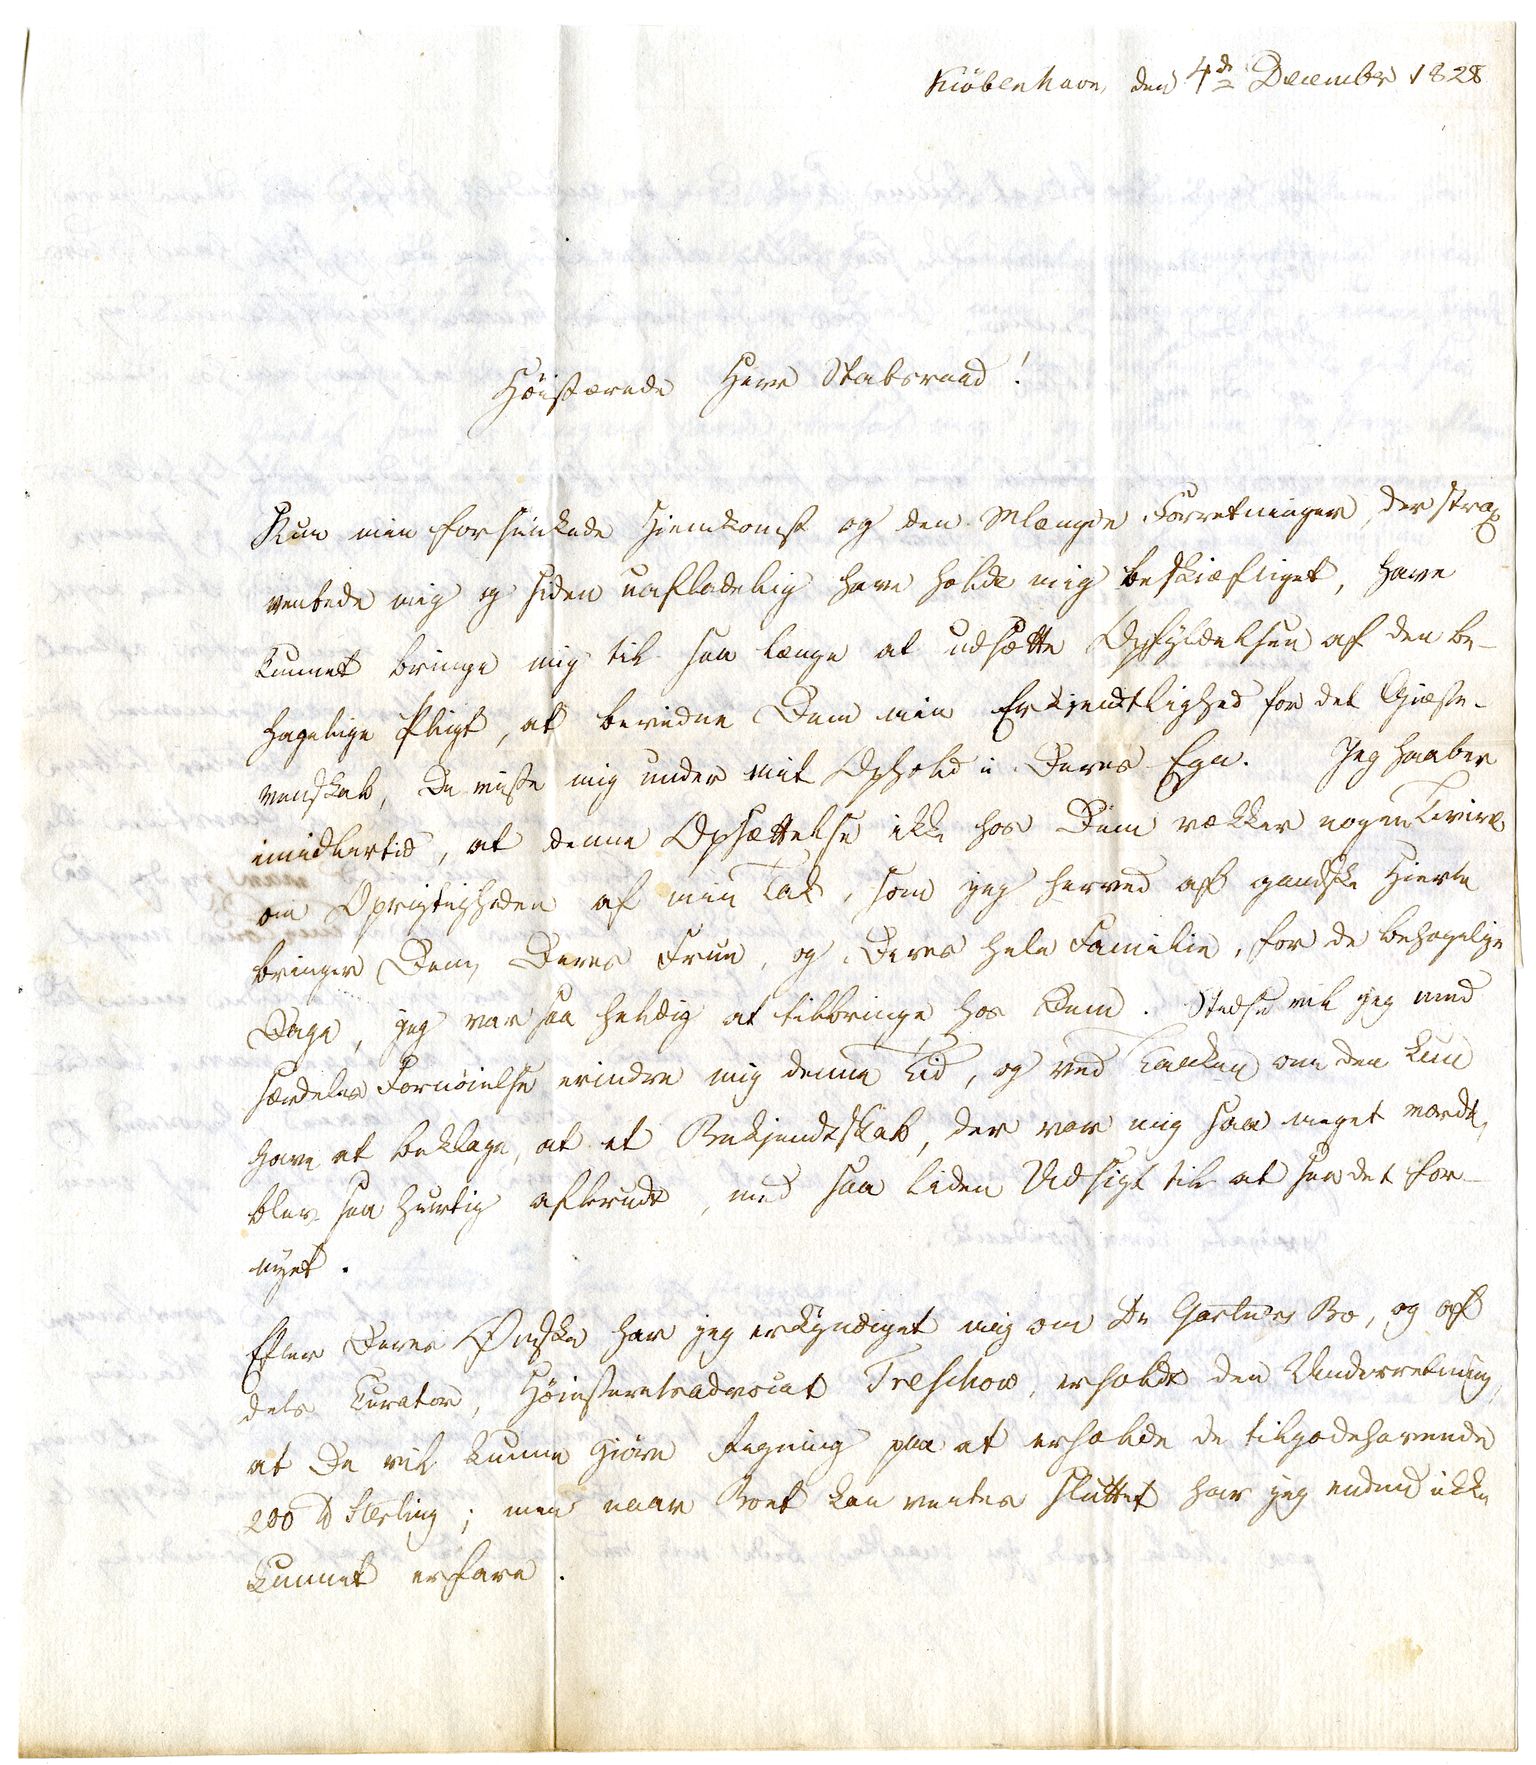 Kiöbenhavn, den 4de December 1828
Höistærede Herr Statsraad!
Kun min forsinkede Hjemkomst og den Mængde Forretninger, der strax
ventede mig og siden uafladelig have holdt mig beskiæftiget, have
kunnet bringe mig til saa længe at udsætte Opfyldelsen af den be-
hagelige Pligt, at bevidne Dem min Erkjendtlighed for det Giæste-
venskab, De viiste mig under mit Ophold i Deres Egn. Jeg haaber
imidlertid, at denne Opsættelse ikke hos Dem vækker nogen Tvivl
om Oprigtigheden af min Tak, som jeg herved aff gandske Hierte
bringer Dem, Deres Frue, og Deres hele Familie, for de behagelige
Dage, jeg var saa heldig at tilbringe hos Dem. Stedse vil jeg med
særdeles Fornöielse erindre mig denne Tid, og ved Tanken om den kun
have at beklage, at et Bekjendtskab, der var mig saa meget værdt,
blev saa hurtig afbrudt, med saa liden Udsigt til at see det for-
nyet.
Efter Deres Ønske har jeg erkyndiget mig om Dr Gartners Bo, og aff
dets Curator, Höiesteretsadvocat Treschow, erholdt den Underretning,
at De vil kunne giöre Regning paa at erholde de tilgodehavende
200 ₶ Sterling; men naar Boet kan ventes sluttet har jeg endnu ikke
kunnet erfare.